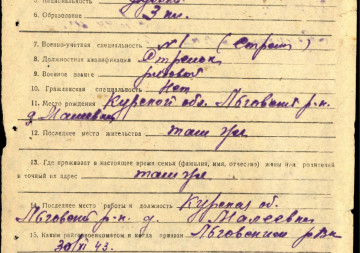 5. Специальность
6. Образование 3 кл.
7. Военно-учетная специальность №1 (Строит)
8. Должностная квалификация Стрелок
9. Военное звание рядовой
10. Гражданская специальность Нет
11. Место рождения Курской обл. Льговский р-н
д. Малеевка
12. Последнее место жительства там же
13. Где проживает в настоящее время семья (фамилия, имя, отчество) жены или родителей
и точный их адрес там же
14. Последнее место работы и должность Курская об.
Льговский р-н. д. Малеевка
15. Каким райвоенкоматом и когда призван Льговским рвк
30/XI 43.